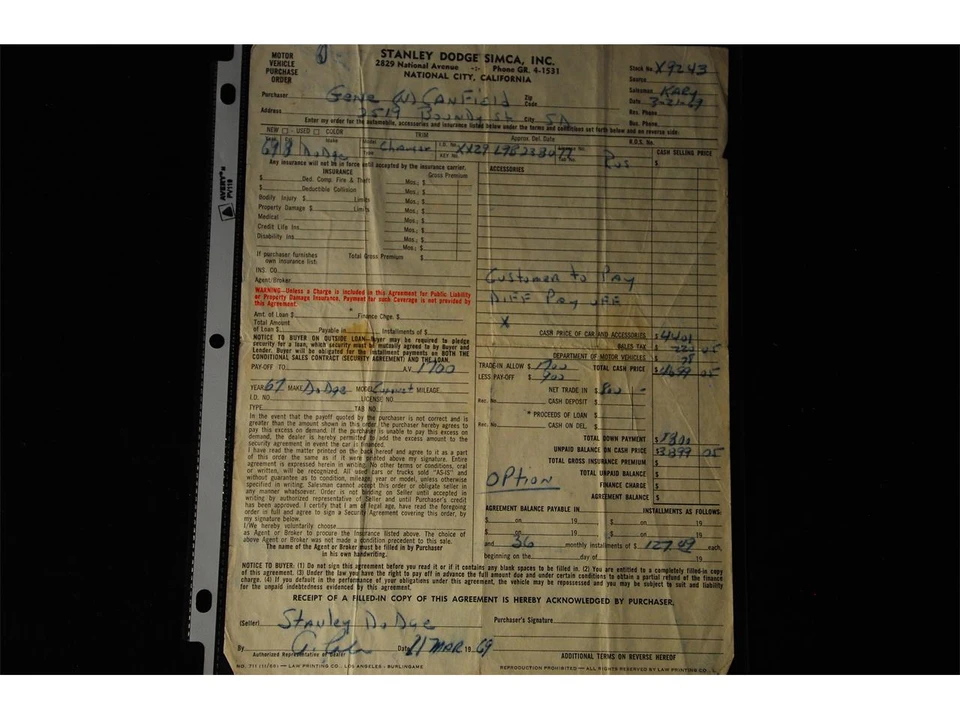 MOTOR VEHICLE PURCHASE ORDER
STANLEY DODGE SIMCA, INC.
2829 National Avenue -:- Phone GR. 4-1531
NATIONAL CITY, CALIFORNIA
Stock No. X9243
Source
Salesman KARY
Date 3-21-69
Res. Phone
Bus. Phone
R.O.S. No.
Purchaser Gene (N) Canfield Zip Code
Address 2519 Boundy St City SD
Enter my order for the automobile, accessories and insurance listed below under the terms and conditions set forth below and on reverse side:
NEW USED COLOR TRIM Approx. Del. Date
69 8 Dodge Charger I.D. No. XX29 L9B
KEY No.
CASH SELLING PRICE $
Any insurance will not be in force until accepted by the insurance carrier.
INSURANCE Gross Premium
$ Ded. Comp. Fire & Theft Mos.; $
$ Deductible Collision Mos.; $
Bodily Injury $ Limits Mos.; $
Property Damage $ Limits Mos.; $
Medical Mos.; $
Credit Life Ins. Mos.; $
Disability Ins. Mos.; $
Mos.; $
If purchaser furnishes own insurance list. Total Gross Premium $
INS. CO.
Agent/Broker
ACCESSORIES
Customer to Pay
Diff Pay off
X
WARNING—Unless a Charge is included in this Agreement for Public Liability
or Property Damage Insurance, Payment for such Coverage is not provided by
this Agreement.
Amt. of Loan $ Finance Chge. $
Total Amount of Loan $ Payable in Installments of $
NOTICE TO BUYER ON OUTSIDE LOAN—Buyer may be required to pledge
security for a loan, which security must be mutually agreed to by Buyer and
Lender. Buyer will be obligated for the installment payments on BOTH THE
CONDITIONAL SALES CONTRACT (SECURITY AGREEMENT) AND THE LOAN.
PAY-OFF TO A.V. 1700
YEAR 67 MAKE Dodge MODEL Coronet MILEAGE
I.D. NO. LICENSE NO.
TYPE TAB NO.
CASH PRICE OF CAR AND ACCESSORIES $ 4401
SALES TAX $ 220 05
DEPARTMENT OF MOTOR VEHICLES $ 78
TRADE-IN ALLOW $ 1700 TOTAL CASH PRICE $ 4699 05
LESS PAY-OFF $ 900
NET TRADE IN $ 800
Rec. No. CASH DEPOSIT $
* PROCEEDS OF LOAN $
Rec. No. CASH ON DEL. $
TOTAL DOWN PAYMENT $ 800
UNPAID BALANCE ON CASH PRICE $ 3899 05
TOTAL GROSS INSURANCE PREMIUM $
TOTAL UNPAID BALANCE $
OPTION
FINANCE CHARGE $
AGREEMENT BALANCE $
AGREEMENT BALANCE PAYABLE IN INSTALLMENTS AS FOLLOWS:
$ on 19 $ on 19
$ on 19 $ on 19
and 36 monthly installments of $ 127.09 each,
beginning on the day of 19
In the event that the payoff quoted by the purchaser is not correct and is
greater than the amount shown in this order, the purchaser hereby agrees to
pay this excess on demand. If the purchaser is unable to pay this excess on
demand, the dealer is hereby permitted to add the excess amount to the
security agreement in event the car is financed.
I have read the matter printed on the back hereof and agree to it as a part
of this order the same as if it were printed above my signature. Entire
agreement is expressed herein in writing. No other terms or conditions, oral
or written, will be recognized. All used cars or trucks sold "AS-IS" and
without guarantee as to condition, mileage, year or model, unless otherwise
specified in writing. Salesman cannot accept this order or obligate seller in
any manner whatsoever. Order is not binding on Seller until accepted in
writing by authorized representative of Seller and until Purchaser's credit
has been approved. I certify that I am of legal age, have read the foregoing
order in full and agree to sign a Security Agreement covering this order, by
my signature below.
I/We hereby voluntarily choose
as Agent or Broker to procure the Insurance listed above. The choice of
above Agent or Broker was not made a condition precedent to this sale.
The name of the Agent or Broker must be filled in by Purchaser
in his own handwriting.
NOTICE TO BUYER: (1) Do not sign this agreement before you read it or if it contains any blank spaces to be filled in. (2) You are entitled to a completely filled-in copy
of this agreement. (3) Under the law you have the right to pay off in advance the full amount due and under certain conditions to obtain a partial refund of the finance
charge. (4) If you default in the performance of your obligations under this agreement, the vehicle may be repossessed and you may be subject to suit and liability
for the unpaid indebtedness evidenced by this agreement.
RECEIPT OF A FILLED-IN COPY OF THIS AGREEMENT IS HEREBY ACKNOWLEDGED BY PURCHASER.
(Seller) Stanley Dodge Purchaser's Signature
By Date 21 MAR 19 69
Authorized Representative of Dealer
ADDITIONAL TERMS ON REVERSE HEREOF
NO. 711 (11/66) — LAW PRINTING CO., LOS ANGELES - BURLINGAME
REPRODUCTION PROHIBITED — ALL RIGHTS RESERVED BY LAW PRINTING CO.
AVERY®
PV119